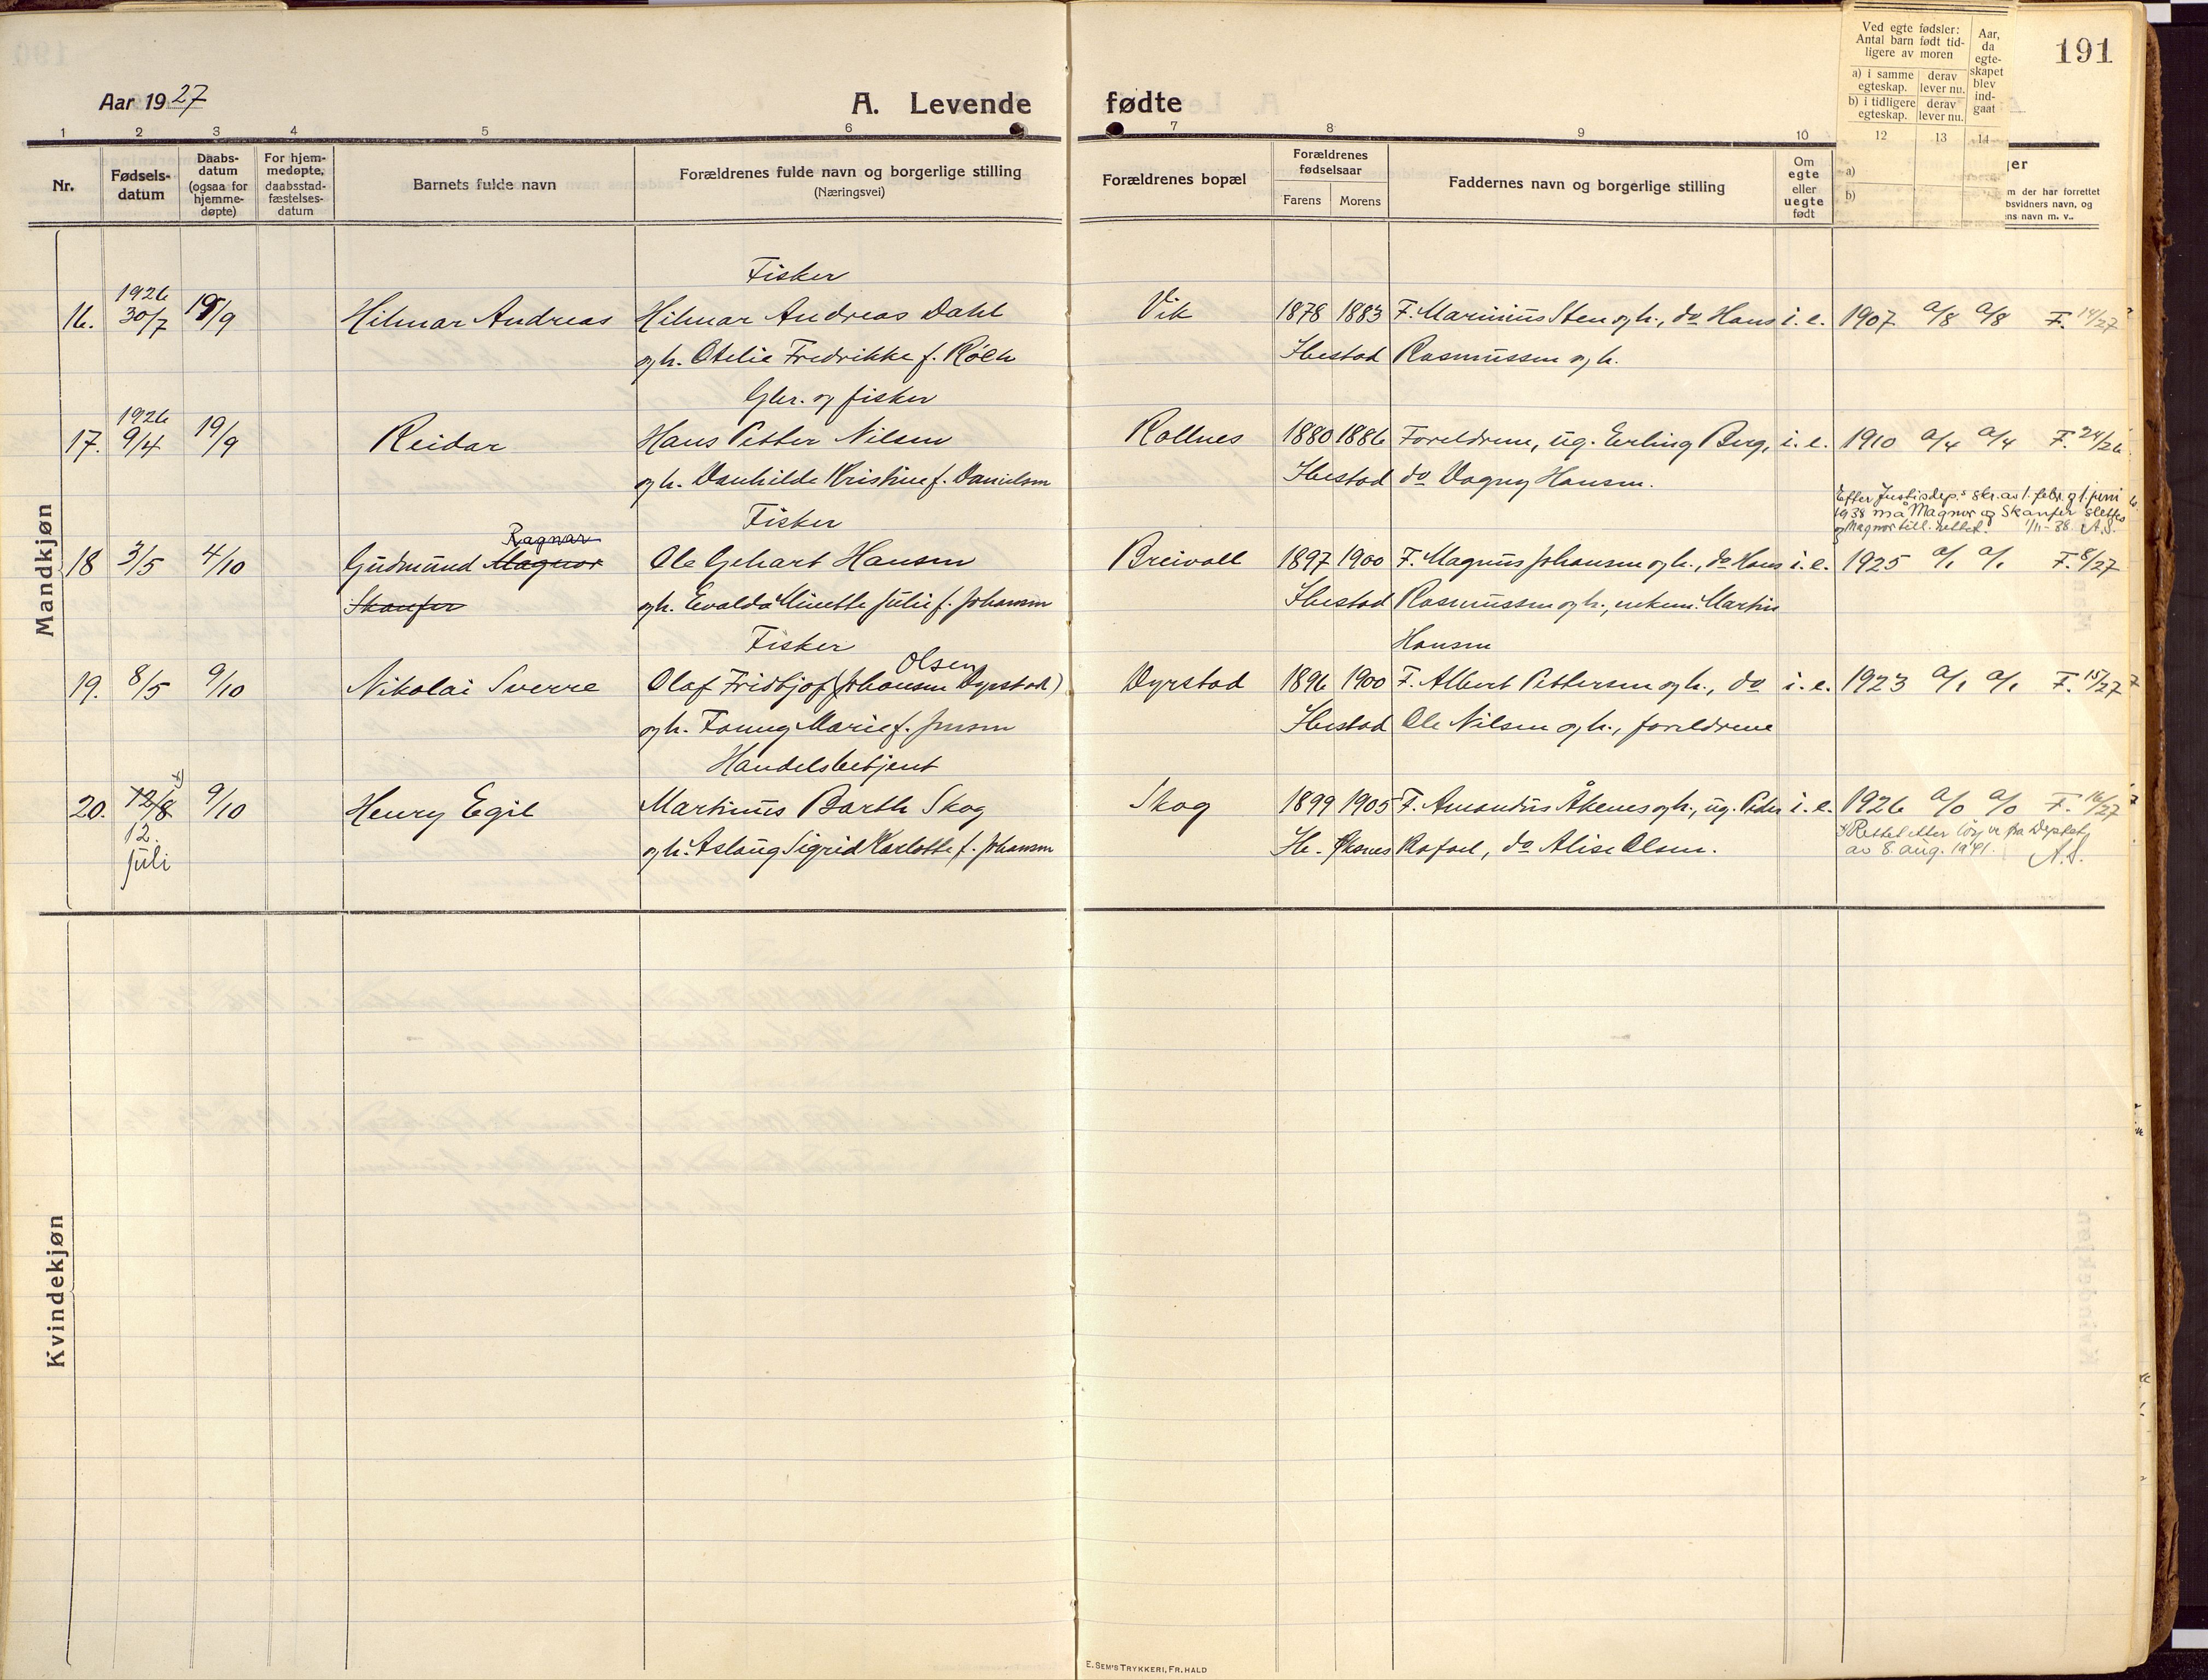 Aar 1927
A. Levende fødte
191
Ved egte fødsler:
Antal barn født tid-
ligere av moren
a) i samme egteskap.
derav lever nu.
b) i tidligere egteskap.
derav lever nu.
Aar, da egte-skapet blev ind-gaat
1 2 3 4 5 6 7 8 9 10 12 13 14
Nr.
Fødsels-datum
Daabs-datum (ogsaa for hjemme-døpte)
For hjem-medøpte, daabsstad-fæstelses-datum
Barnets fulde navn
Forældrenes fulde navn og borgerlige stilling
(Næringsvei)
Forældrenes bopæl
Forældrenes fødselsaar
Farens Morens
Faddernes navn og borgerlige stilling
Om egte eller uegte født
a)
b)
m der har forrettet
bsvidners navn, og
ns navn m. v..
Mandkjøn
Fisker
16. 1926 30/7 18/9 Hilmar Andreas Hilmar Andreas Dahl Vik 1878 1883 F. Marinius Sten og h., do Hans i. e. 1907 a/8 a/8 F. 14/27
og h. Otelie Fredrikke f. Røkh Ibestad Rasmussen og h.
Gbr. og fisker
17. 1926 9/4 19/9 Reidar Hans Petter Nilsen Rollnes 1880 1886 Foreldrene, ug. Erling Berg, i. e. 1910 a/4 a/4 F. 24/26
og h. Danhilde Kristine f. Danielsen Ibestad do Dagny Hansen.
Efter Justisdep.s skr. av 1. febr. og 1. juni
1938 må Magnor og Skanfer slettes
1/11-38. A.S.
Fisker
Ragnar
18 3/5 4/10 Gudmund Magnor Ole Gehart Hansen Breivoll 1897 1900 F. Magnus Johansen og h., do Hans i. e. 1925 a/1 a/1 F. 8/27
Skanfer og h. Evalda Minette Julie f. Johansen Ibestad Rasmussen og h., enkem. Martin
Fisker Hansen
Olsen
19. 8/5 9/10 Nikolai Sverre Olaf Fridtjof (Johansen Dyrstad) Dyrstad 1896 1900 F. Albert Pettersen og h., do i. e. 1923 a/1 a/1 F. 15/27
og h. Fanny Marie f. Jensen Ibestad Ole Nilsen og h., foreldrene
Handelsbetjent
20. 12/8 x) 9/10 Henry Egil Martinus Barth Skog Skog 1899 1905 F. Amandus Åkenes og h., ug. Peder i. e. 1926 a/0 a/0 F. 16/27
12. juli
og h. Aslaug Sigrid Karlotte f. Johansen Ib. Rafael, do Alise Olsen.
x) Rettet efter
av 8. aug. 1941. A.S.
Kvindekjøn
E. SEM'S TRYKKERI, FR. HALD